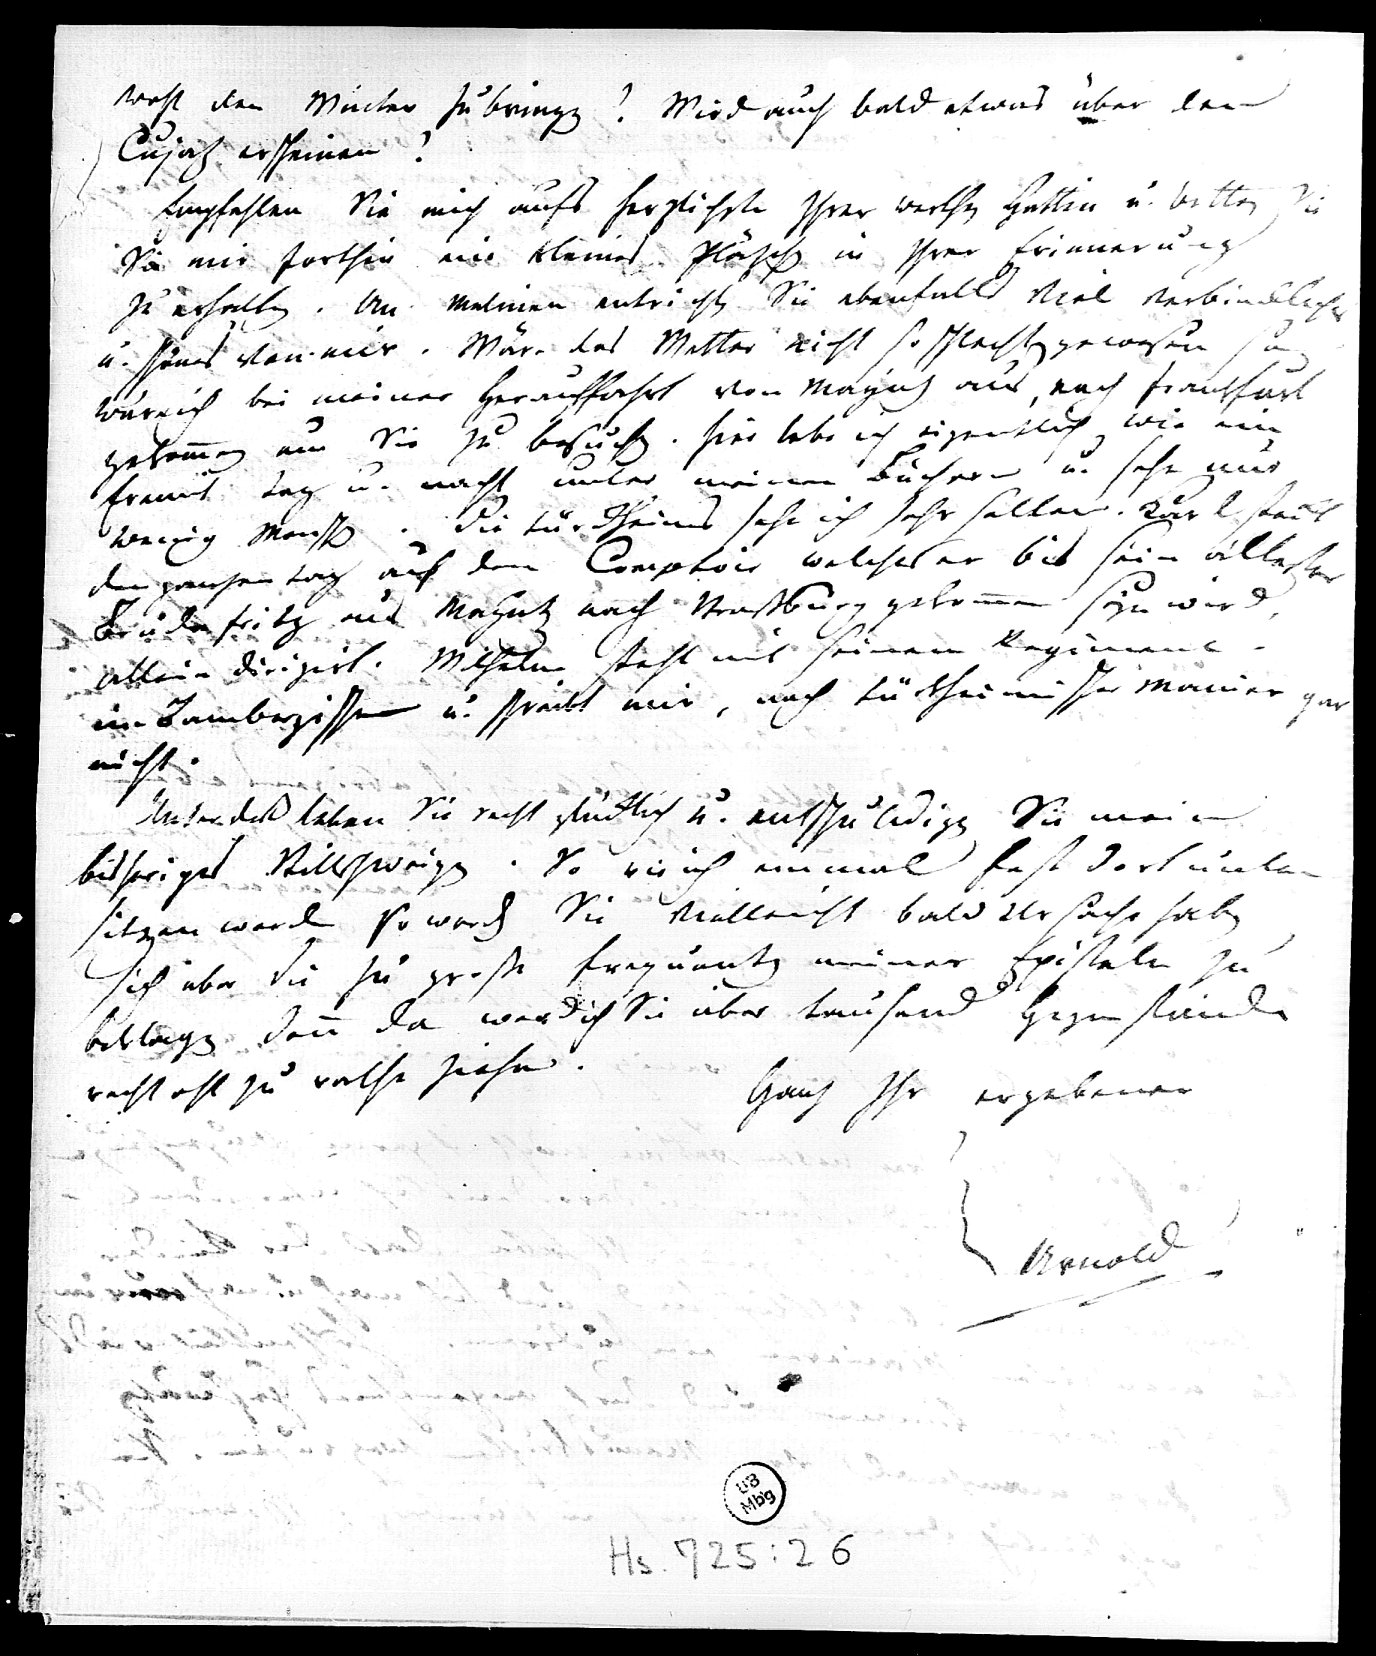 wohl den Winter zubringen? Wird auch bald etwas über den
Cujaz erscheinen?
Empfehlen Sie mich aufs herzlichste Ihrer werthen Gattin u. bitten Sie
Sie mir forthin ein kleines Pläzchen in Ihrer Erinnerung
zu erhalten. An Melinen entrichten Sie ebenfalls viel verbindliches
u. schönes von mir. Wäre das Wetter nicht so schlecht gewesen so
wäre ich bei meiner Herauffahrt von Maynz aus, nach Frankfurt
gekommen um Sie zu besuchen. Hier lebe ich eigentlich wie ein
Eremit Tag u. Nacht unter meinen Büchern u. sehe nur
wenig Menschen. Die Türckheims sehe ich sehr selten. Karl
den ganzen Tag auf dem Comptoir welches er bis sein ältester
Bruder Fritz aus Maynz nach Strasburg gekommen seyn wird,
allein dirigirt. Wilhelm steht mit seinem Regiment
im Bambergischen u. schreibt mir, nach türkheimischer Manier gar
nicht.
Unterdeß leben Sie recht glücklich u. entschuldigen Sie mein
bisheriges Stillschweigen. So wie ich einmal fest dort unten
sitzen werde so werden Sie vielleicht bald Ursache haben
sich über die zu große Frequenz meiner Episteln zu
beklagen denn da werde ich Sie über tausend Gegenstände
recht oft zu rathe ziehen.
Ganz Ihr ergebener
Arnold
UB
Mbg
Hs. 725:26